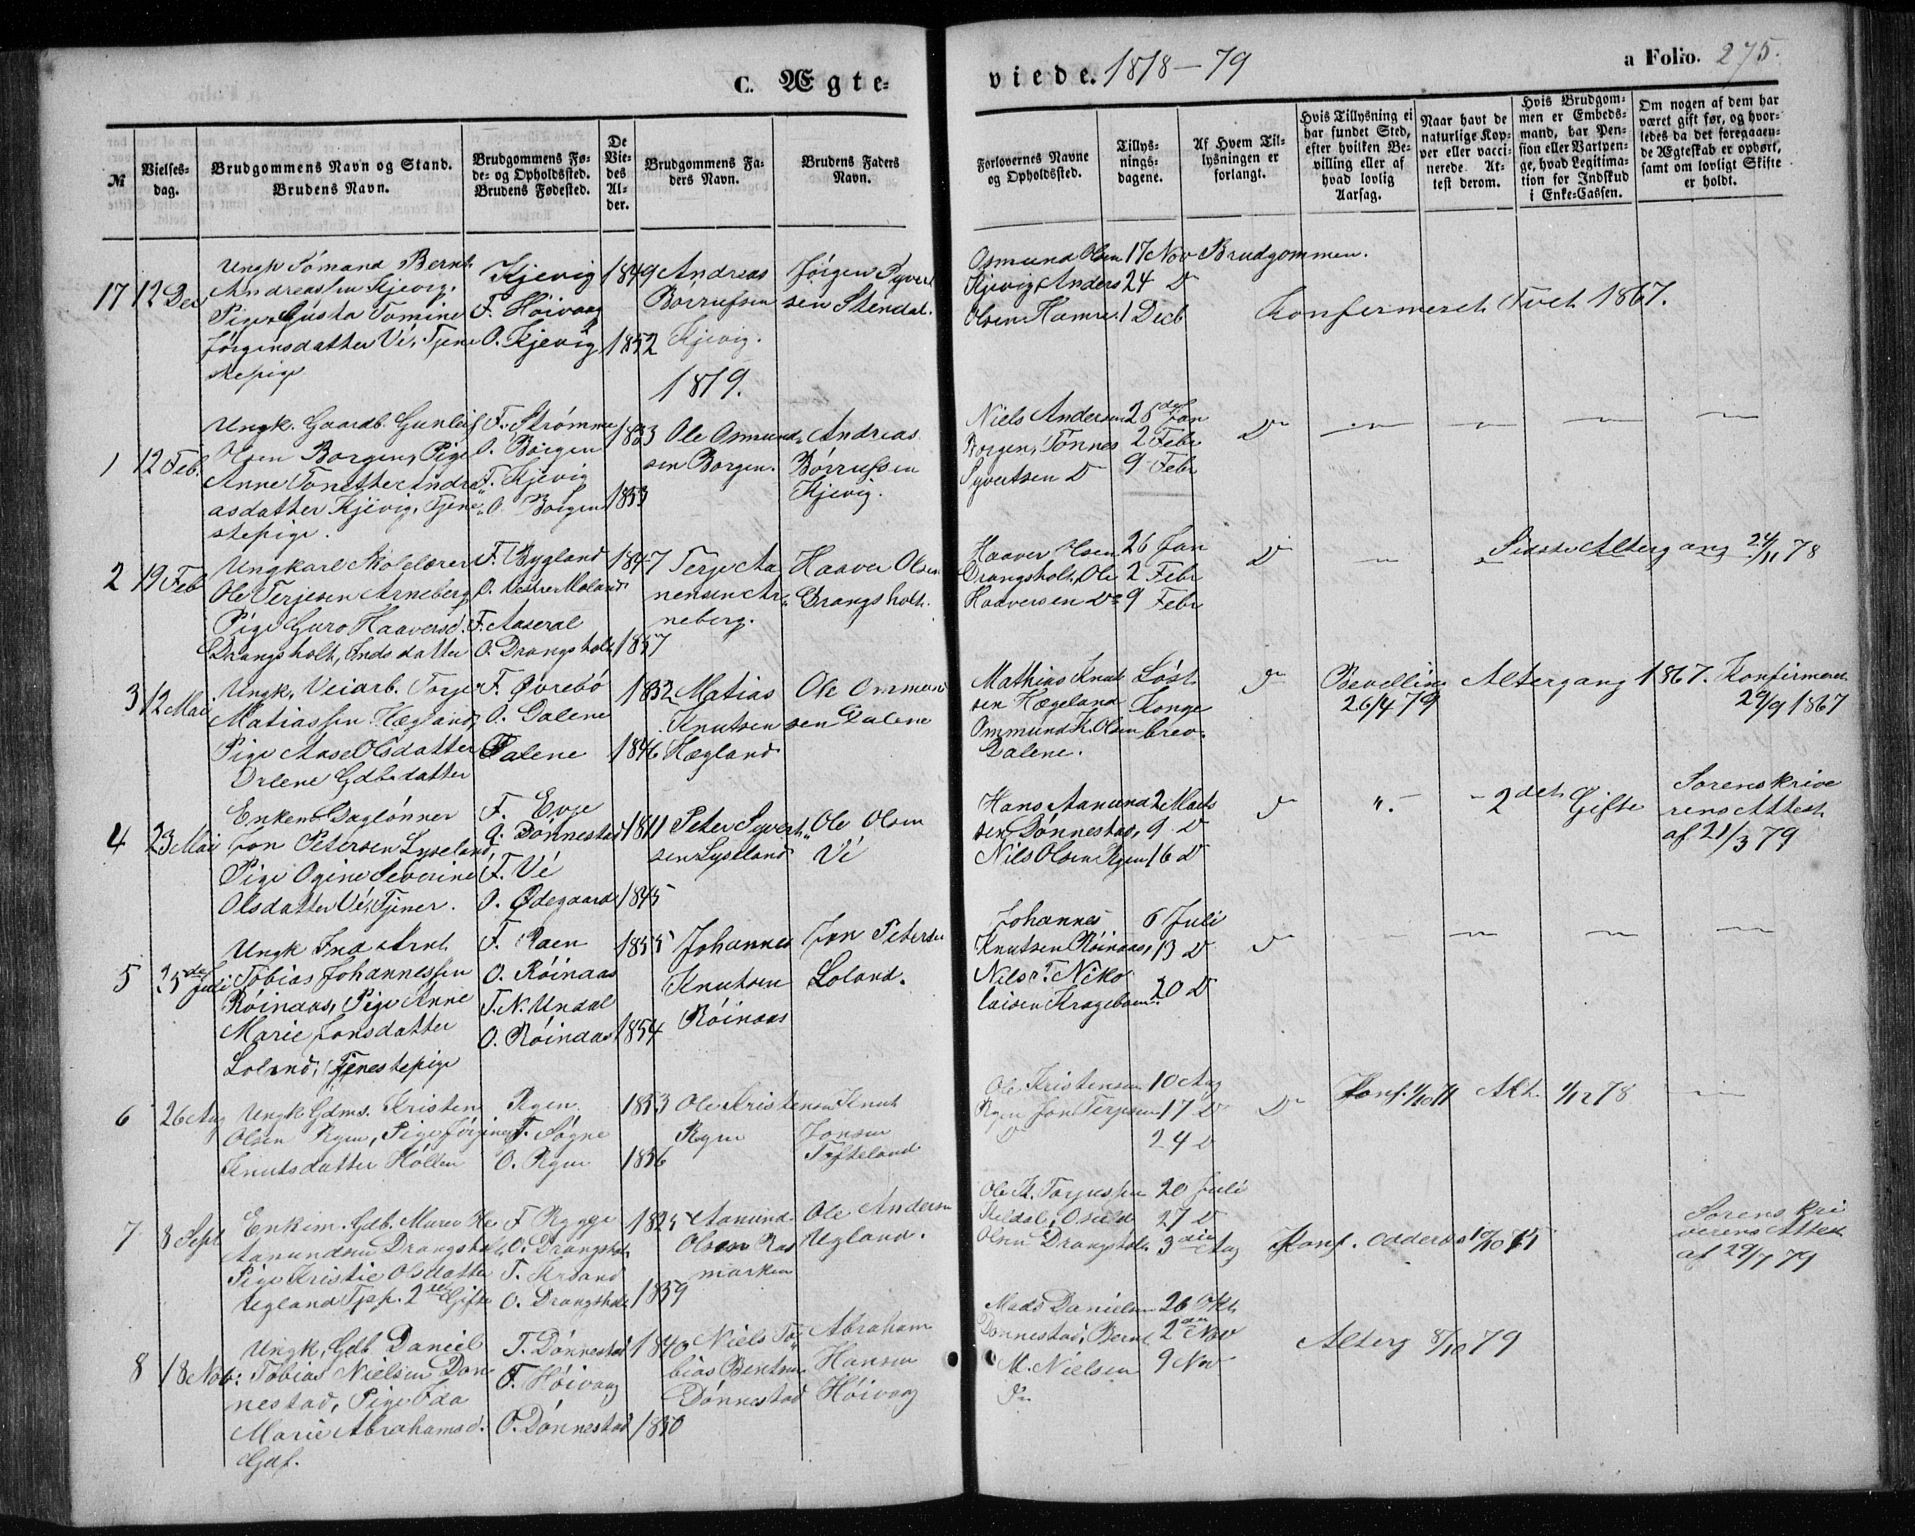 C. Ægte-
viede. 1878-79
a Folio. 275.
№
Vielses-
dag.
Brudgommens Navn og Stand.
Brudens Navn.
Brudgommens Fø-
de- og Opholdssted.
Brudens Fødested.
De
Vie-
des
Al-
der.
Brudgommens Fa-
ders Navn.
Brudens Faders
Navn.
Forlovernes Navne
og Opholdssted.
Tillys-
nings-
dagene.
Af Hvem Til-
lysningen er
forlangt.
Hvis Tillysning ei
har fundet Sted,
efter hvilken Be-
villing eller af
hvad lovlig
Aarsag.
Naar havt de
naturlige Kop-
per eller vacci-
nerede. At-
test derom.
Hvis Brudgom-
men er Embeds-
mand, har Pen-
sion eller Vartpen-
ge, hvad Legitima-
tion for Indskud
i Enke-Cassen.
Om nogen af dem har
været gift før, og hvor-
ledes da det foregaaen-
de Ægteskab er ophørt,
samt om lovligt Skifte
er holdt.
17 12 Dec
Ungk Sömand Bernt
Andreassen Kjevig.
Pige Gusta Tomine
Jörgensdatter Vé, Tjene
stepige
Kjevig
F. Höivaag
O. Kjevig
1849
1852
Andreas
Börrufsen
Kjevig.
Jörgen Syvert
sen Stendal.
Osmund Olsen
Kjevig Anders
Olsen Hamre
17 Nov
24 D
1 Decb
Brudgommen.
Konfirmeret Tvet 1867.
1879.
1 12 Feb.
Ungk. Gaardb. Gunleif
Olsen Borgen, Pige
Anne Tonette Andre
asdatter Kjevig, Tjene
stepige.
F. Strømme
O. Borgen
F. Kjevig
O. Borgen
1853
1853
Ole Osmund
sen Borgen.
Andreas
Börrufsen
Kjevig.
Niels Andersen
Borgen, Tönnes
Syvertsen D
26 Jan
2 Febr
9 Febr
2 19 Feb
Ungkarl Skolelærer
Ole Terjesen Arneberg
Pige Guro Haaversd.
Drangsholt, Indsdatter
F. Bygland
O. Vestre Moland
F. Aaseral
O. Drangsholt
1847
1857
Terje Aa
nensen Ar
neberg.
Haaver Olsen
Drangsholt.
Haaver Olsen
Drangsholt, Ole
Haaversen Do
26 Jan
2 Febr
9 Febr
Sidste Altergang 24/11 78
3 12 Mai
Ungk, Veiarb. Torjer
Matiassen Hægland,
Pige Aase Olsdatter
Dalene Gdbsdatter
F. Øvrebö
O. Dalene
Dalene
1832
1846
Matias
Knutsen
Hægland
Ole Ommund
sen Dalene
Mathias Knut
sen Hægeland
Ommund K. Olsen
Dalene.
Löst
Konge
brev.
Bevelling
26/4 79
Altergang 1867. Konfirmeret
29/9 1867
4 23 Mai
Enkem Daglönner
Jon Petersen Lyseland,
Pige Ogine Severine
Olsdatter Vé, Tjener.
F. Evje
O. Dönnestad
F. Vé
O. Ødegaard
1811
1845
Peter Syvert
sen Lyseland
Ole Olsen
Vé
Hans Aanund
sen Dönnestad,
Nils Olsen Rgen
2 Marts
9 D
16 D
2det Gifte
Sorenskrive
rens Attest
af 21/3 79
5 25de Juli
Ungk Ind
Tobias Johannessen
Röinaas, Pige Anne
Marie Jonsdatter
Loland, Tjenestepige
F. Raen
O. Röinaas
F. N. Undal
O. Röinaas
1855
1854
Johannes
Knutsen
Röinaas
Jon Petersen
Loland.
Johannes
Knutsen Röinaas,
Nils T. Niko
laisen Krageboen
6 Juli
13 D
20 D
6 26 Aug
Ungk Gdms. Kristen
Olsen Rgen, Pige Jörgine
Knutsdatter Höllen
Rgen
F. Sögne
O. Rgen
1853
1856
Ole Kristensen
Rgen
Knut
Jonsen
Tofteland
Ole Kristensen
Rgen Jon Terjesen
D
10 Aug
17 D
24 D
Konf. 1/10 71 Alt. 1/12 78
7 8 Sept
Enkem. Gdb.
Aanundsen Drangsholt,
Pige Kristie Olsdatter
Ugland Tpg. 2det Gifte
F. Rygge
O. Drangsholt
F. Krsand
O. Drangsholt
1825
1859
Aanund
Olsen Ras
marken
Ole Andersen
Ugland.
Ole K. Torjussen
Kildal,
Olsen Drangsholt
20 Juli
27 D
3die Aug
Konf. Oddernes 10/10 75
Sorenskri
verens Attest
af 29/7 79
8 18 Nob:
Ungk, Gdb Daniel
Tobias Nielsen Dön
nestad, Pige Ida
Marie Abrahamsd.
Gdf.
F. Dönnestad
F. Höivaag
O. Dönnestad
1840
1850
Niels To
bias Berntsen
Dönnestad
Abraham
Hansen
Höivaag
Mads Danielsen
Dönnestad, Bernt
M. Nielsen
Do
26 Okt.
2den Nov
9 Nov
Alterg 8/10 79